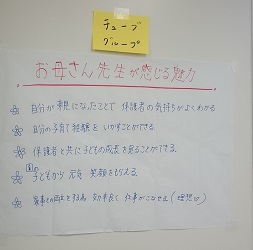 チューブ
グループ
お母さん先生が感じる魅力
自分が親になったことで 保護者の気持ちがよくわかる
自分の子育て経験を いかすことができる
保護者と共に子どもの成長を見ることができる。
園の
子どもから 元気 笑顔をもらえる。
家事との両立を 効率良く 仕事がこなせる(理想)